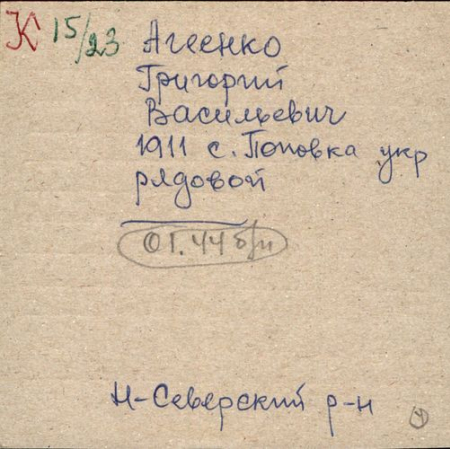 К 15/23 Агеенко
Григорий
Васильевич
1911 с. Поповка укр
рядовой
01.44 б/п
Н-Северский р-н
4